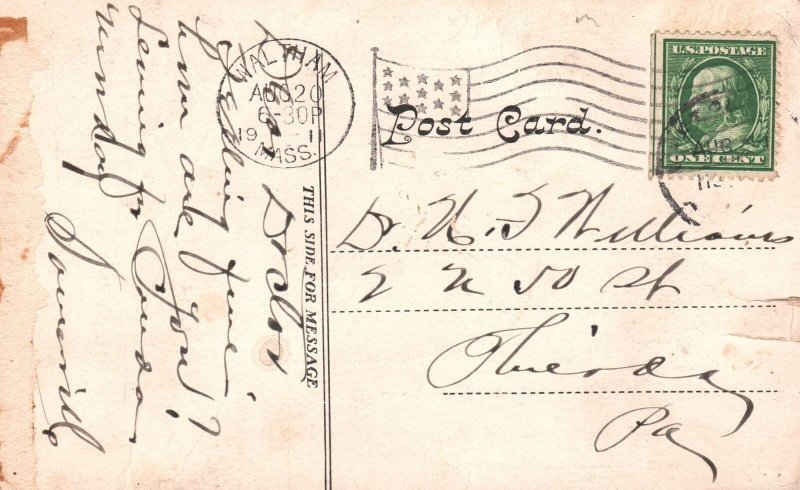 Dear Doctor
Feeling fine
how are you?
Leaving for
Sunday
WALTHAM
AUG 20
6-30P
19 11
MASS.
Post Card.
U.S. POSTAGE
ONE CENT
AUG
THIS SIDE FOR MESSAGE
Dr. N. S. Williams
2 N 50 St
Phila
Pa